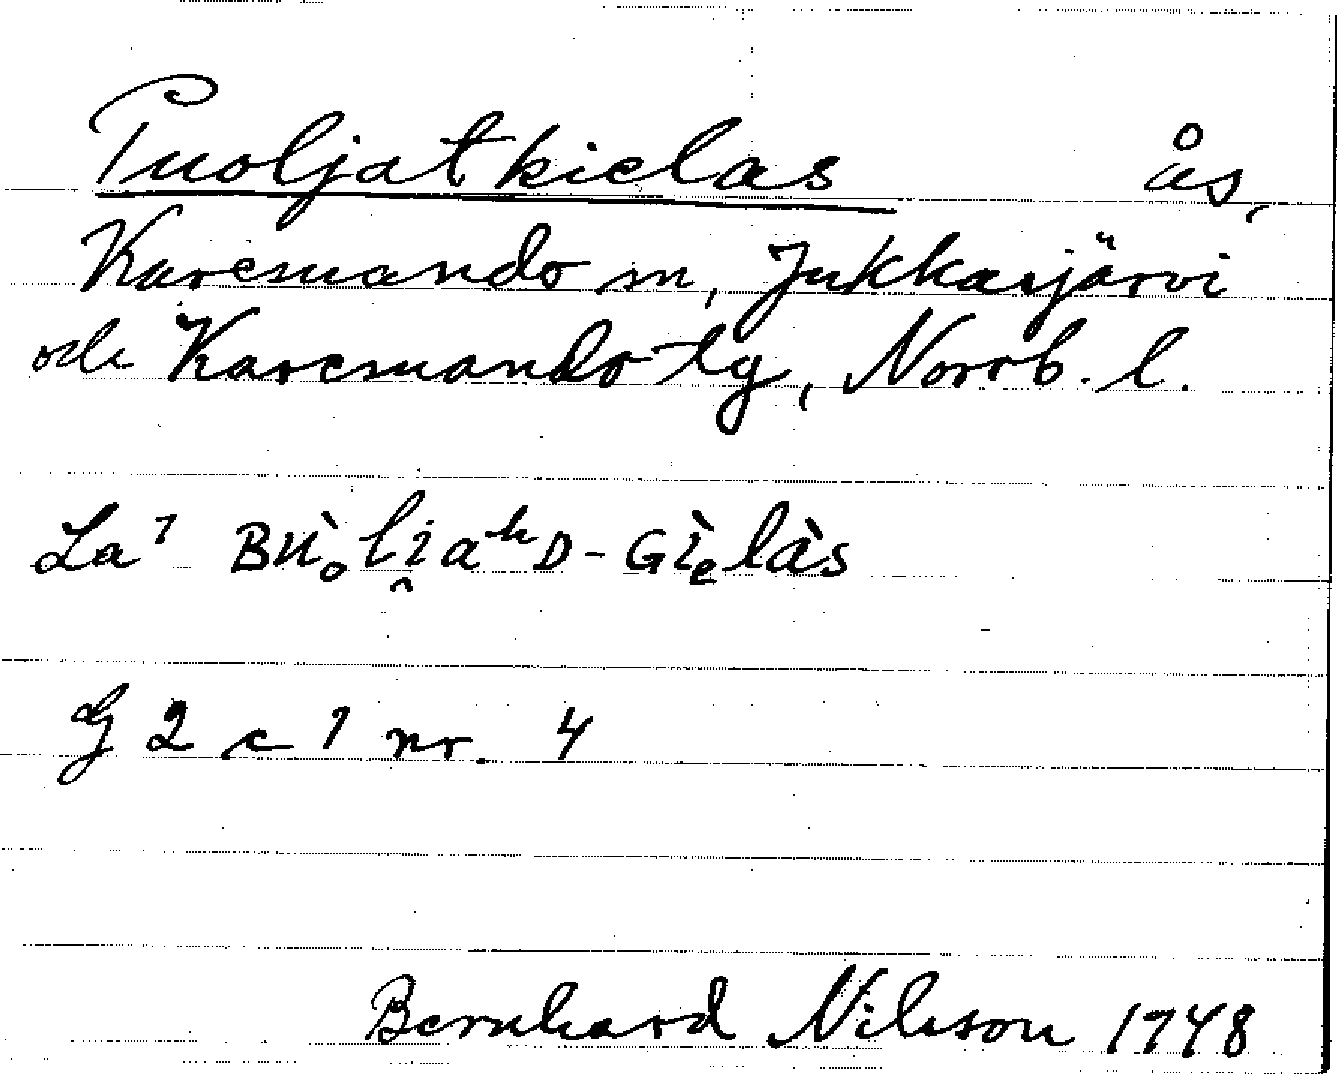 Puoljatkielas ås,
Karesuando sn, Jukkasjärvi
och Karesuando tg, Norrb. l.
La 1 BÙₒli̮aʰD-GÌₑlàs
G 2 c 1 nr. 4
Bernhard Nilsson 1748